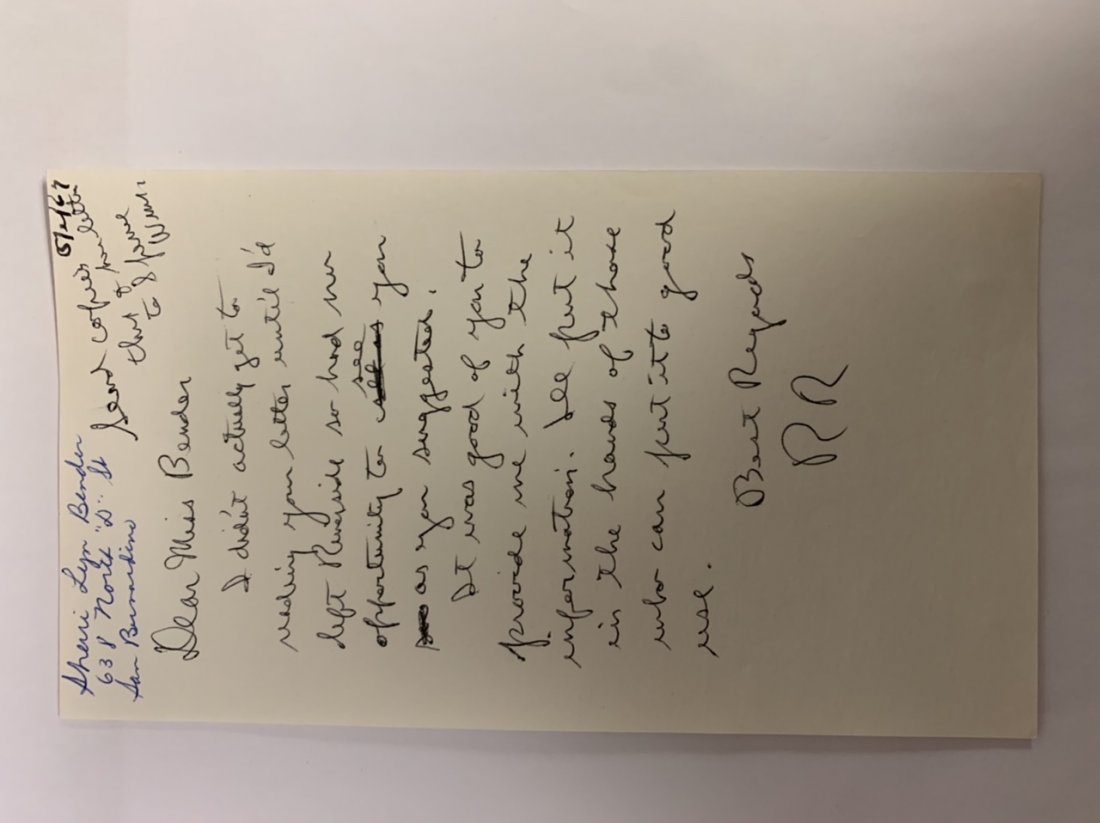 Sherri Lyn Bender
638 North "D" St
San Bernardino
5/2/67
Send copies
this & her letter
to
Dear Miss Bender
I didn't actually get to
reading your letter until I'd
left Riverside so had no
opportunity to see you
as you suggested.
It was good of you to
provide me with the
information. I'll put it
in the hands of those
who can put it to good
use.
Best Regards
RR